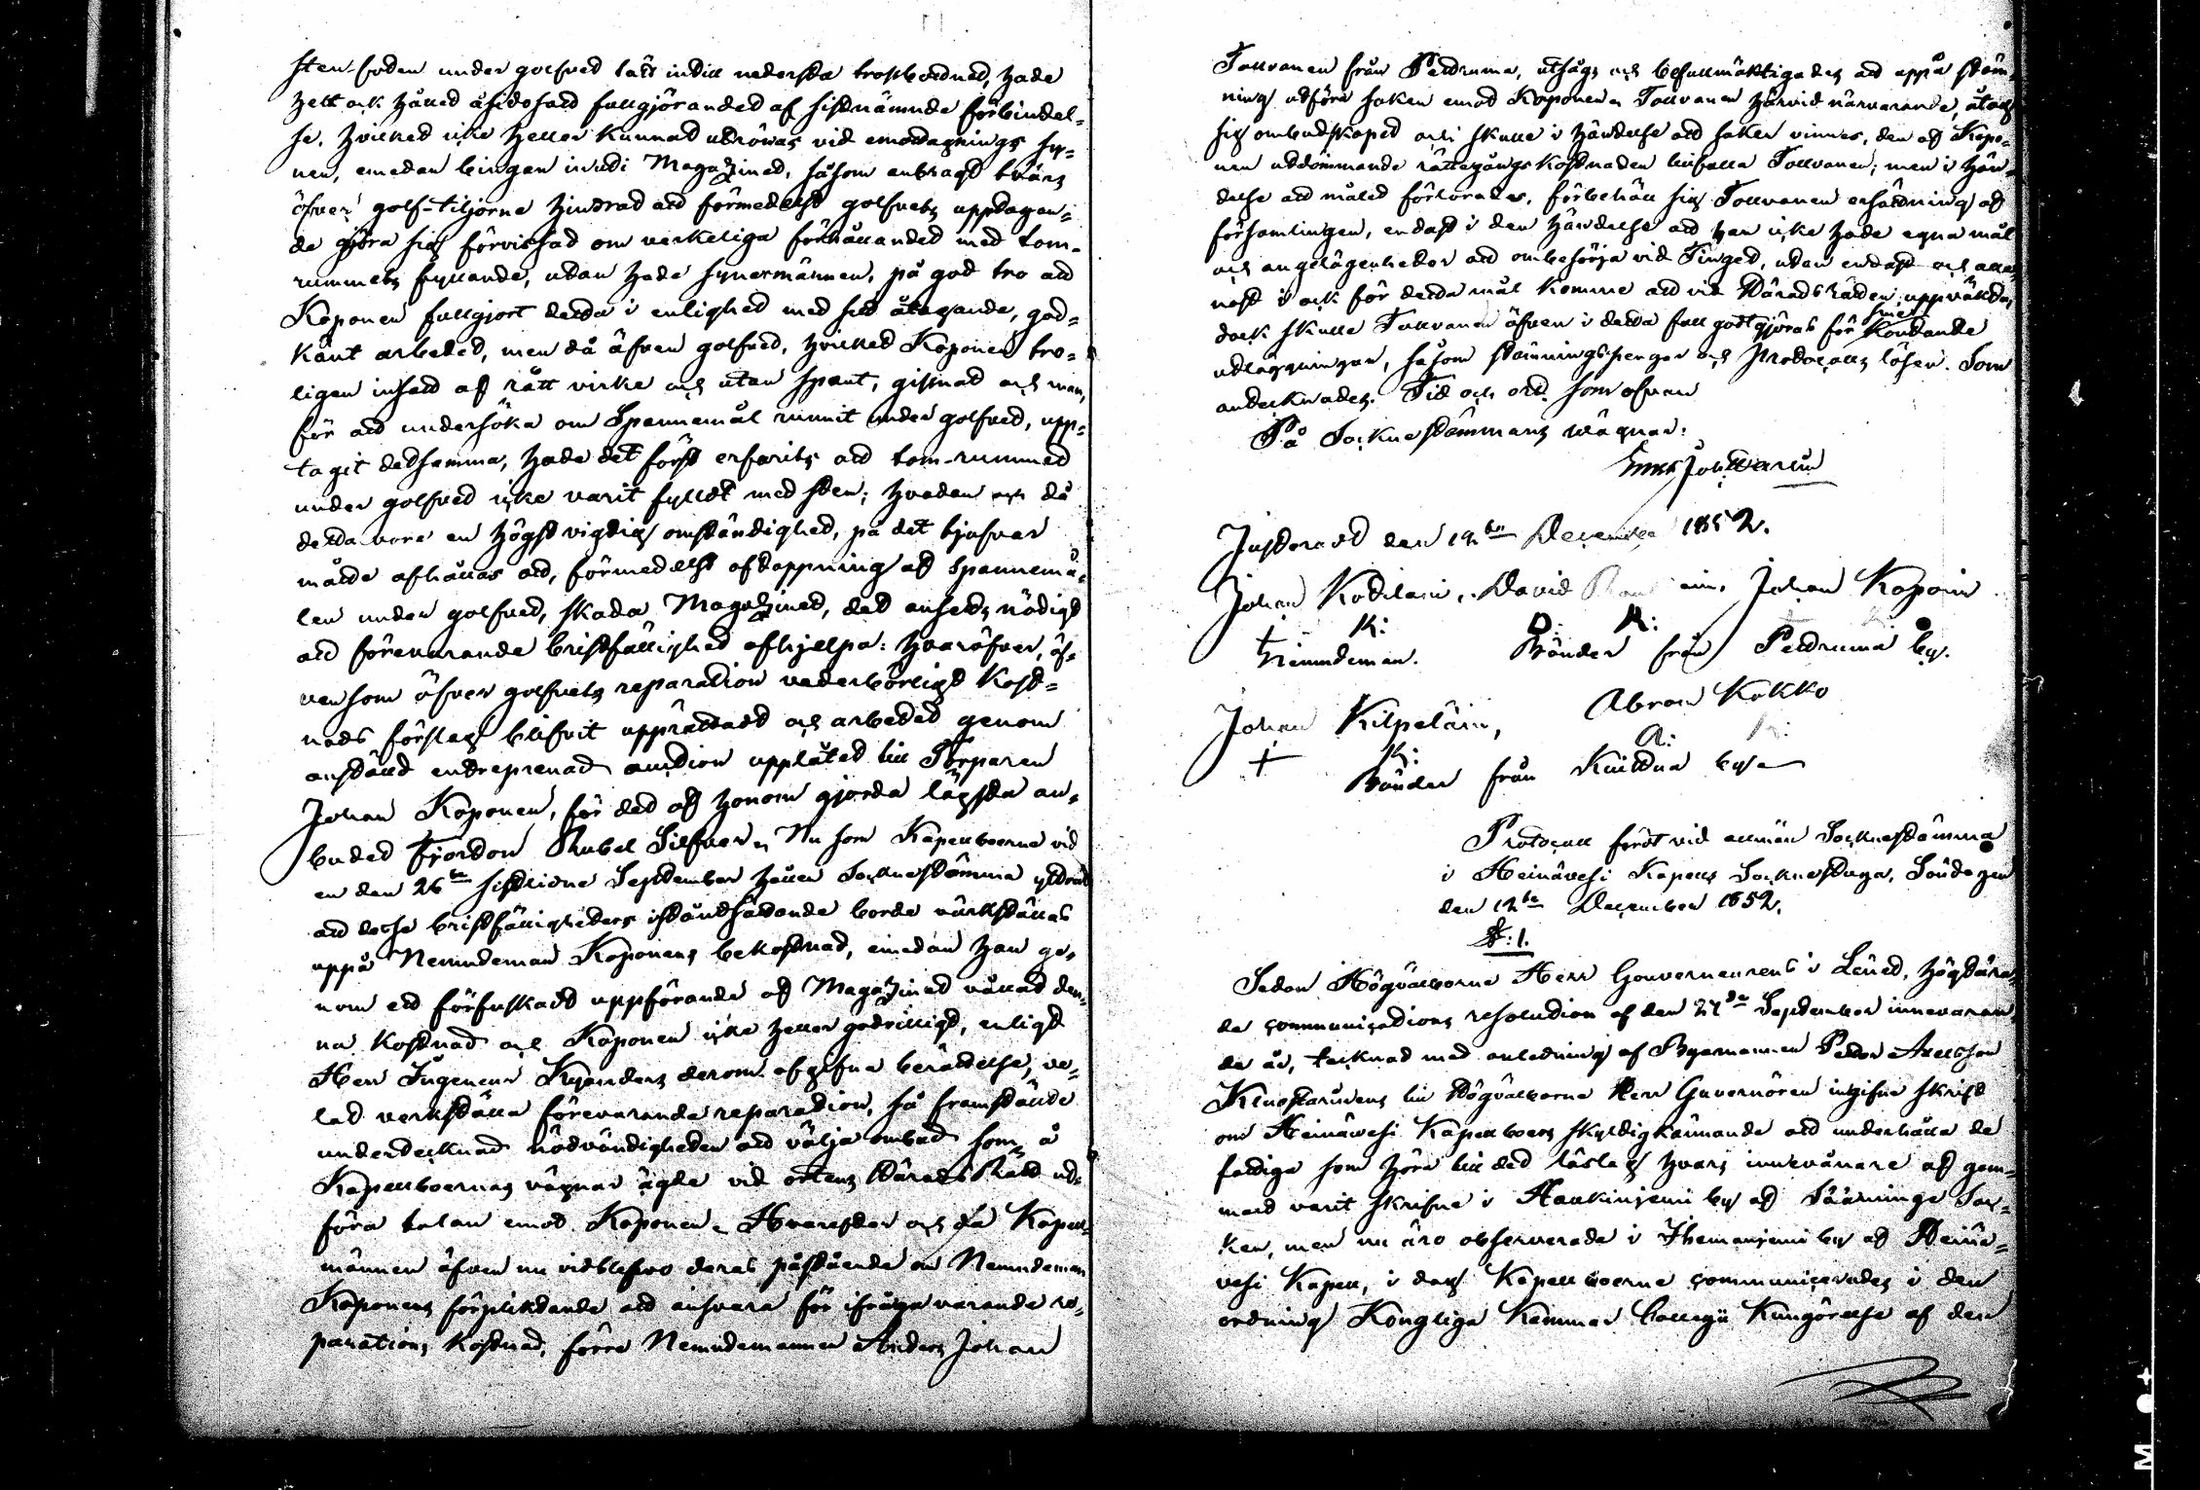 sten foden under golfved tätt intill nedersta trossbottnet, hade
helt och hållet åsidosatt fullgörandet af sistnämnde förbindel-
se, hvilket icke heller kunnat utrönas vid emottagnings sy-
nen, emedan bingen inuti Magazinet, såsom anbragt tvärs
öfver golf-tiljorne hindrat att förmedelst golfvets upptagan-
de göra sig förvissad om verkeliga förhållandet med tom-
rummets fyllande, utan hade synemännen, på god tro att
Koponen fullgjort detta i enlighet med sitt åtagande, god-
känt arbetet, men då äfven golfvet, hvilket Koponen tro-
ligen insatt af rått virke och utan spont, gissnat och man,
för att undersöka om Spannemål runnit under golfvet, upp-
tagit detsamma, hade det först erfarits att tom-rummet
under golfvet icke varit fylldt med sten; hvadan och då
detta vore en högst vigtig omständighet, på det tjufvar
måtte afhållas att, förmedelst aftappning af spannemå-
len under golfvet, skada Magazinet, det ansetts nödigt
att förevarande bristfällighet afhjelpa: hvaröfver, äf-
vensom öfver golfvets reparation vederbörligt kost-
nads förslag blifvit upprättadt och arbetet genom
anställd entreprenad auction upplåtet till Torparen
Johan Koponen, för det af honom gjorda lägsta an-
budet Fjorton Rubel Silfver. Nu som Kapellboerne vid
en den 26te sistledne September hållen Socknestämma yttrat
att desse bristfälligheters iståndsättande borde värkställas
uppå Nemndeman Koponens bekostnad, emedan han ge-
nom ett förfuskadt uppförande af Magazinet vållat den-
na kostnad och Koponen icke heller godvilligt, enligt
Herr Ingeneur Kyanders derom afgifne berättelse, ve-
lat verkställa förevarande reparation, så framställde
undertecknad nödvändigheten att välja ombud som å
Kapellboernas vägnar ägde vid ortens Härads Rätt ut-
föra talan emot Koponen. Hvarefter och då Kapell-
männen äfven nu vidblefvo deras påstående om Nemndeman
Koponens förpliktande att ansvara för ifråga varande re-
parations kostnad, förre Nemndemannen Anders Johan
Tolvanen från Petruma, utsågs och befullmäktigades att uppå stäm-
ning utföra saken emot Koponen. Tolvanen härvid närvarande, åtog
sig ombudskapet och skulle i händelse att saken vinnes, den af Kopo-
nen utdömmande rättegångs kostnaden tillfalla Tolvanen; men i hän-
delse att målet förlorades, förbehöll sig Tolvanen ersättning af
församlingen, endast i den händelse att han icke hade egna mål
och angelägenheter att ombesörja vid Tinget, utan endast och alle-
nast och för detta mål komme att vid Häradsrätten uppväkta,
dock skulle Tolvanen äfven i detta fall godtgöras för kontanta
smärre
utläggningar, såsom stämningspengar och Protocolls lösen. Som
antecknades. Tid och ort som ofvan
På Sockne stämmans vägnar:
Justerat den 12te December 1852.
Johan Kotilain, David ain, Johan Kopoin
K: D. R:
Nemndeman. Bönder från Petruma by.
Johan Kilpeläin, Abram Kokko
K: A:
Bönder från Kuittua by
Protocoll fördt vid allmän Sockne stämma
i Heinävesi Kapells Sockne stuga, Söndagen
den 12te December 1852.
§: 1.
Sedan Högvälborne Herr Gouverneurens i Länet, högtära-
de communications resolution af den 27de September innevaran-
de år, tecknad med anledning af Byamannen Petter Axelsson
till Högvälborne Herr Guvernören ingifne skrift
om Heinäwesi Kapellboers skyldigkännande att underhålla de
fattiga som höra till det läslag hvars innevånare af gam-
malt varit skrifne i Haukinjemi by af Sääminge Soc-
ken, men nu äro observerade i Ihamanjemi by af Heinä-
vesi Kapell, i dag Kapellboerne communicerades i den
ordning Kongliga Kammar Collegii Kungörelse af den